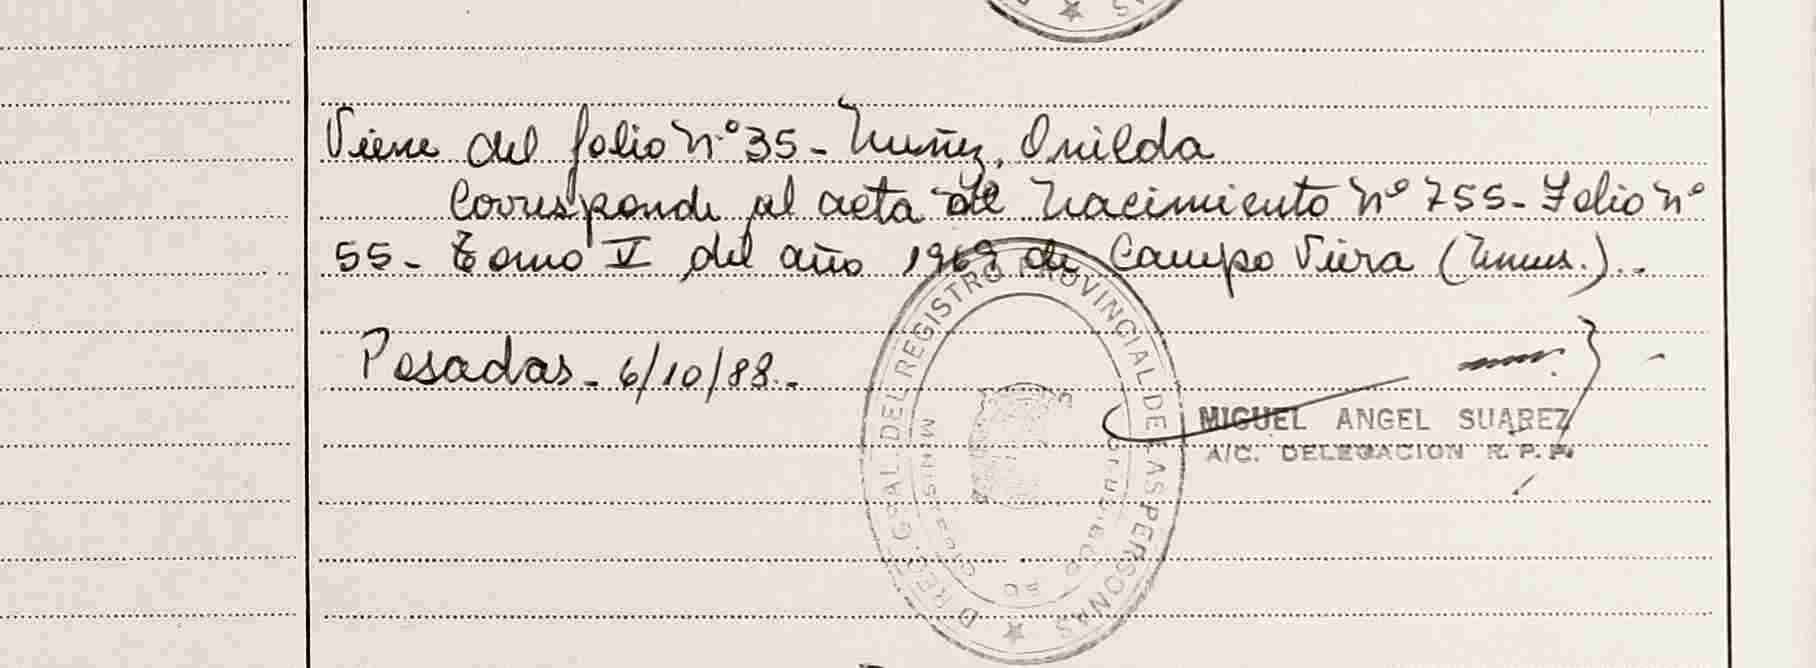 Viene del folio nº 35- Nuñez, Onilda
Corresponde al acta de Nacimiento nº 755- Folio nº
55- Tomo V del año 1969 de Campo Viera (Mnes.)..
Posadas- 6/10/88.-
MIGUEL ANGEL SUAREZ
A/C. DELEGACION R. P. P.
DIREC. GRAL. DEL REGISTRO PROVINCIAL DE LAS PERSONAS